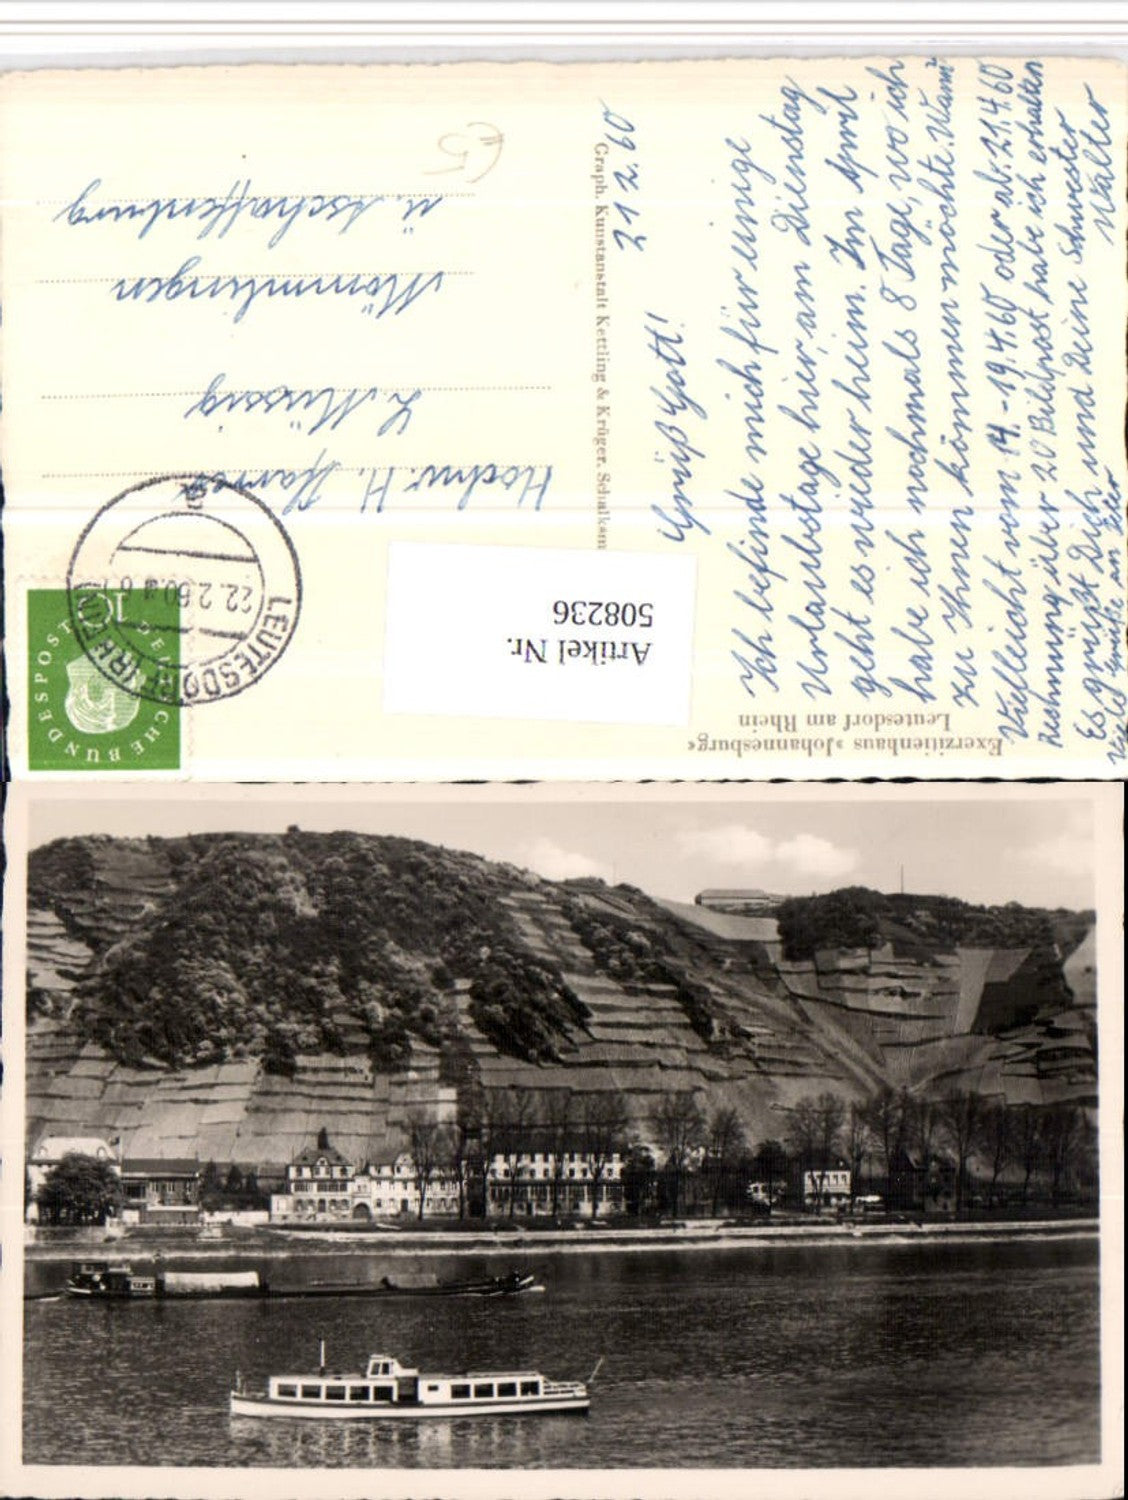 Exerzitienhaus »Johannesburg«
Leutesdorf am Rhein
21 2. 60
Grüß Gott!
Ich befinde mich für einige
Urlaubstage hier, am Dienstag
geht es wieder heim. Im April
habe ich nochmals 8 Tage, wo ich
zu Ihnen kommen möchte. Wann?
Vielleicht vom 14. - 19.4.60 oder ab. 21.4.60
Rechnung über 20 Bildpost habe ich erhalten
Es grüßt Dich und Deine Schwester
Walter
Viele Grüße an Peter
Graph. Kunstanstalt Kettling & Krüger, Schalksm
DEUTSCHE BUNDESPOST
10
LEUTESDORF (RHEIN)
22. 2. 60
a
Hochw. H. Pfarrer
L. Müssig
Mömmlingen
ü. Aschaffenburg
€5
Artikel Nr.
508236